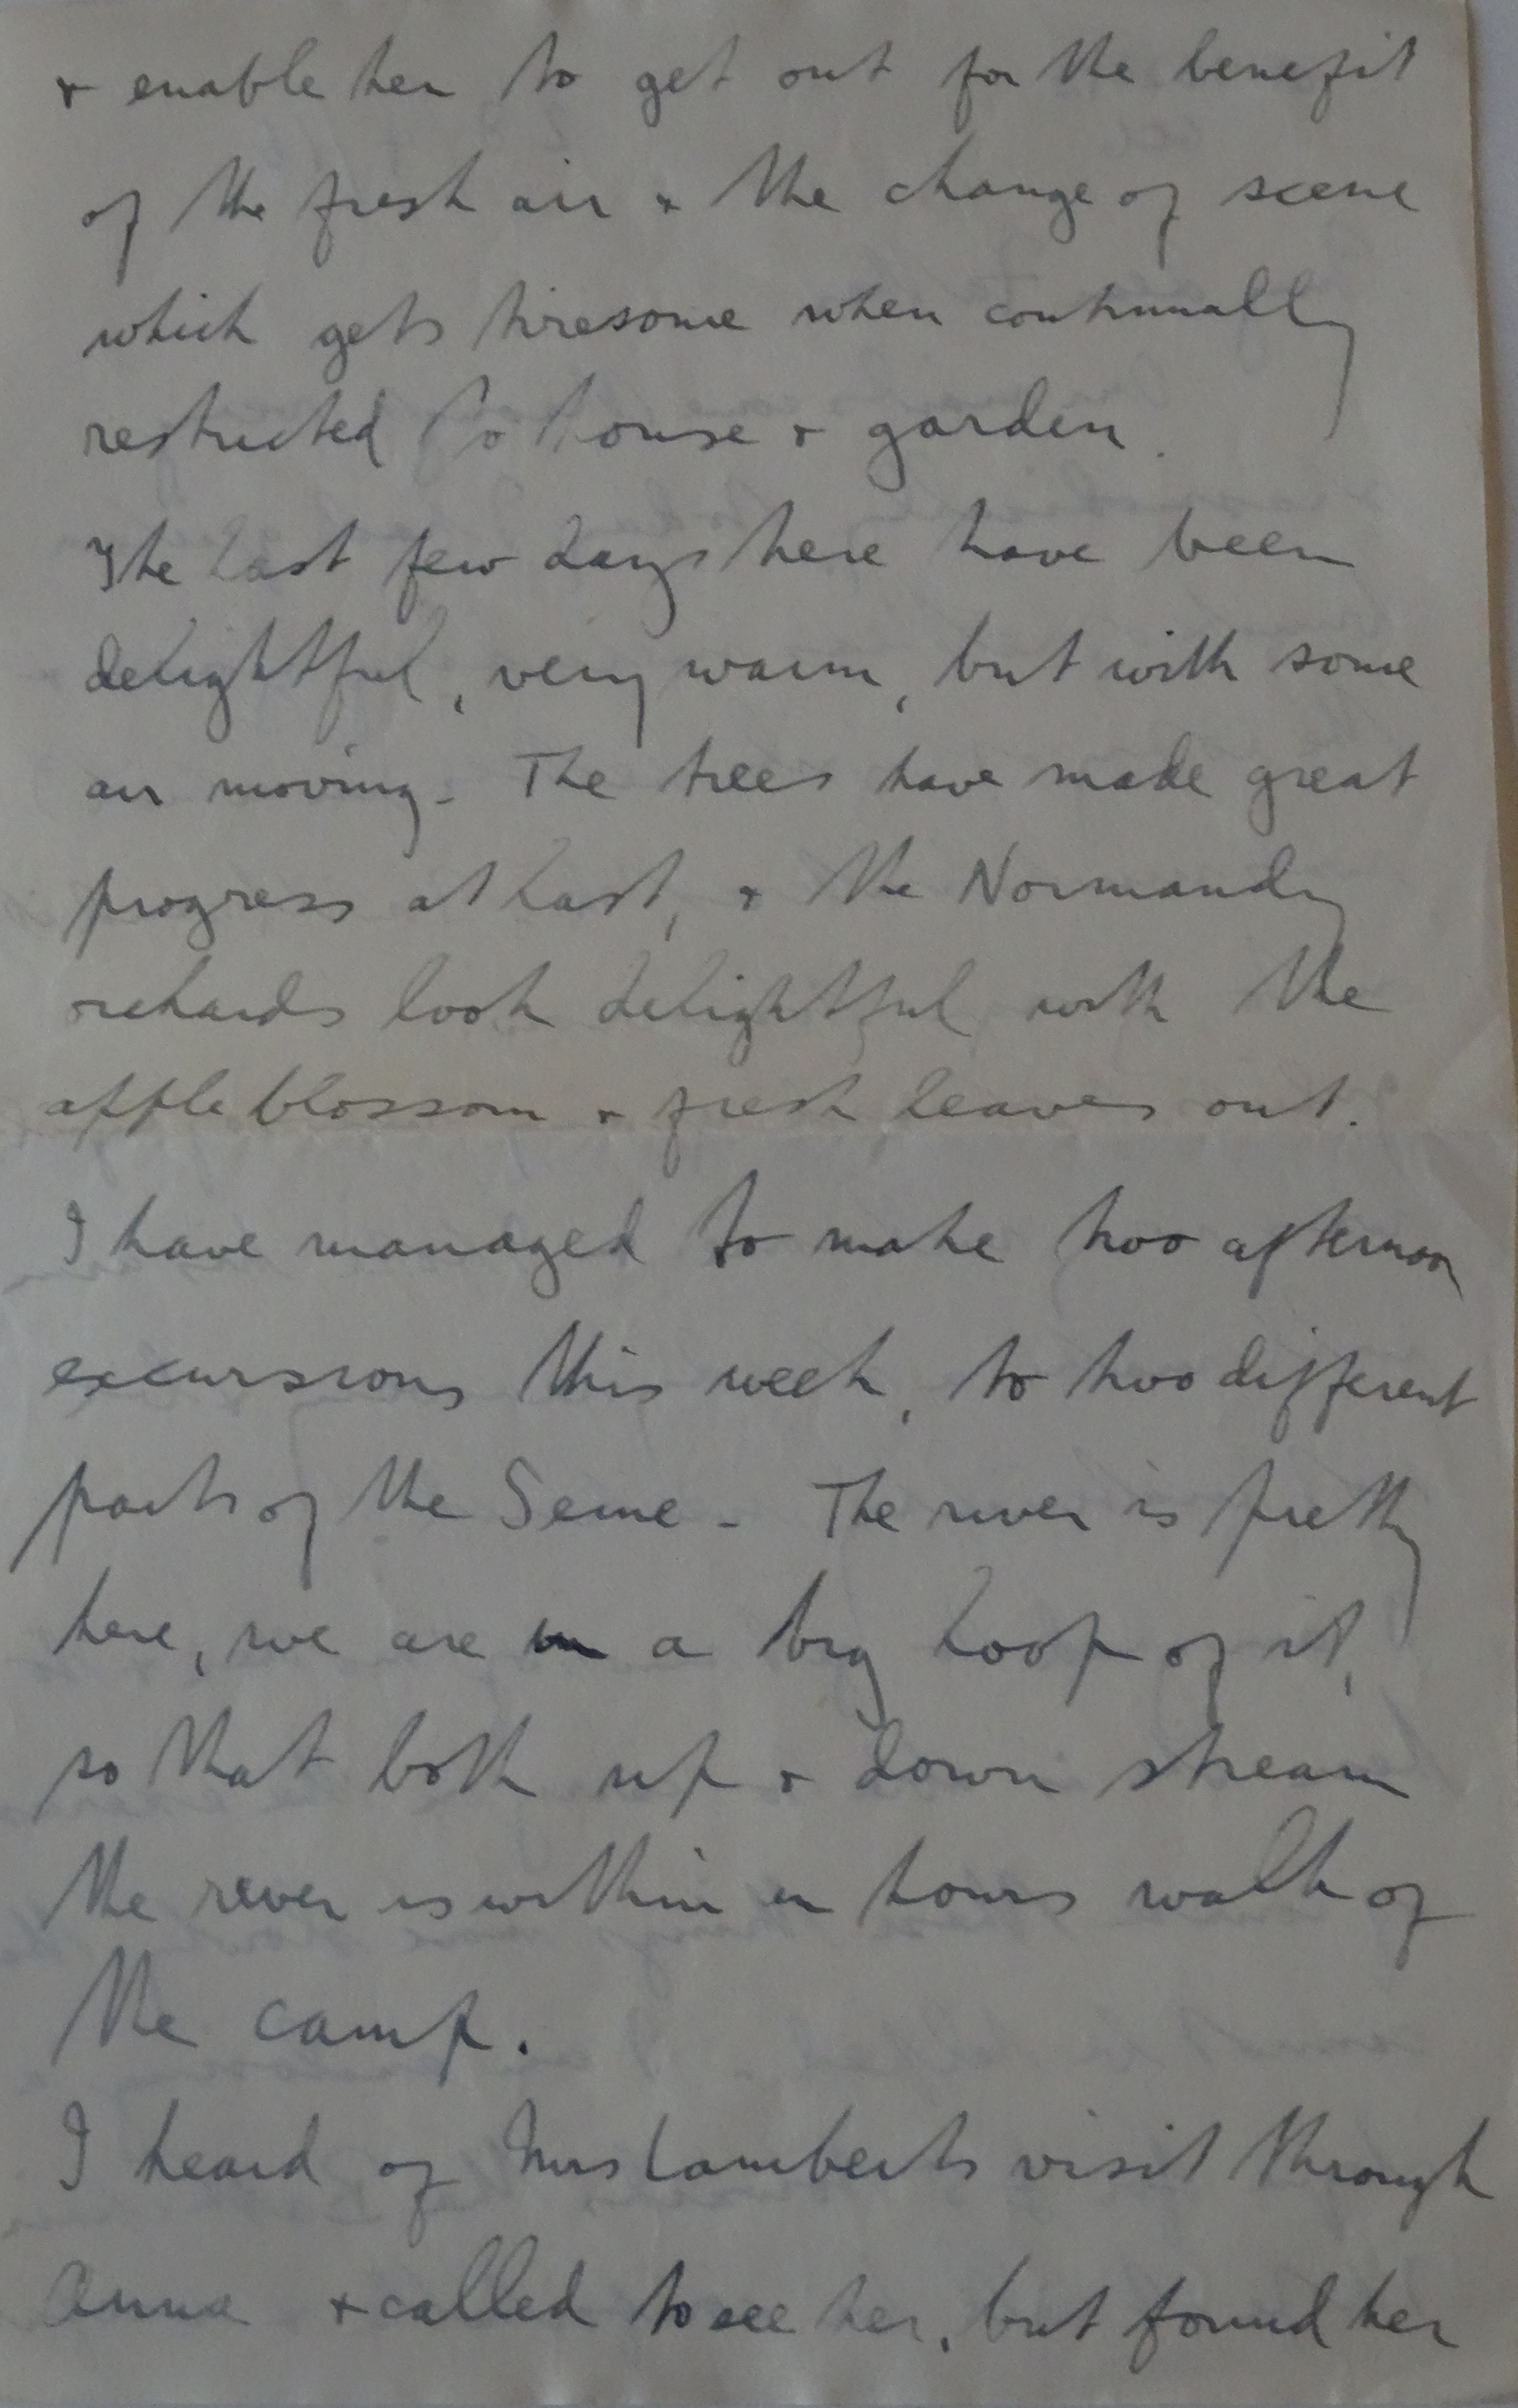 & enable her to get out for the benefit
of the fresh air & the change of scene
which gets tiresome when continually
restricted to house & garden.
The last few days here have been
delightful, very warm, but with some
air moving. The trees have made great
progress at last, & the Normandy
orchards look delightful with the
apple blossom & fresh leaves out.
I have managed to make two afternoon
excursions this week, to two different
parts of the Seine - The river is pretty
here, we are in a big loop of it,
so that both up & down stream
the river is within an hours walk of
the camp.
I heard of Mrs Lamberts visit through
Anna & called to see her, but found her